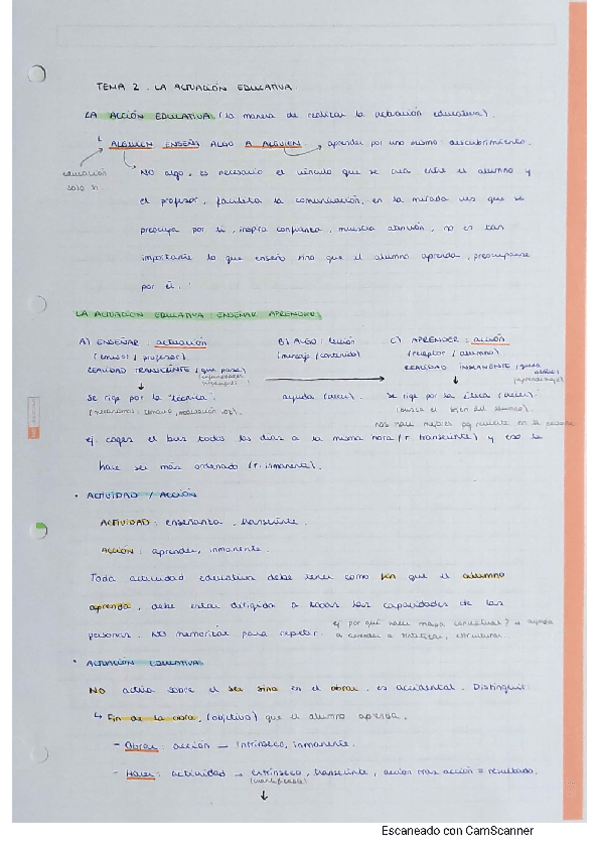 TEMA 2. LA ACTUACIÓN EDUCATIVA.
LA ACCIÓN EDUCATIVA (la manera de realizar la actuación educativa).
ALGUIEN ENSEÑA ALGO A ALGUIEN aprender por uno mismo descubrimiento.
educación
NO algo, es necesario el vínculo que se crea entre el alumno y
el profesor, facilita la comunicación, en la mirada ves que se
preocupa por ti, inspira confianza, muestra atención, no es tan
importante lo que enseño sino que el alumno aprenda, preocuparse
por él.
LA ACTUACIÓN EDUCATIVA: ENSEÑAR APRENDIENDO
A) ENSEÑAR: actuación B) ALGO: lección C) APRENDER: acción
(emisor / profesor) (mensaje / contenido) (receptor / alumno)
REALIDAD TRANSEÚNTE, que pasa) REALIDAD INMANENTE,
(aprendizaje)
Se rige por la "técnica". ayuda Se rige por la ética
ej. coges el bus todos los días a la misma hora (r. transeúnte) y eso te
hace ser más ordenado (r. inmanente).
• ACTIVIDAD / ACCIÓN
ACTIVIDAD: enseñanza, transeúnte.
ACCIÓN: aprender, inmanente.
Toda actividad educativa debe tener como fin que el alumno
aprenda, debe estar dirigida a todas las capacidades de las
personas. No memorizar para repetir. ej por qué hacer mapas conceptuales? → ayuda
a aprender a sintetizar, estructurar.
• ACTUACIÓN EDUCATIVA
NO actúa sobre el ser sino en el obrar, es accidental. Distinguir:
↳ Fin de la obra, (objetivo) que el alumno aprenda.
- Obrar: acción → intrínseco, inmanente.
- Hacer: actividad → extrínseco, transeúnte, acción tras acción = resultado.
(cuantificable)
Escaneado con CamScanner